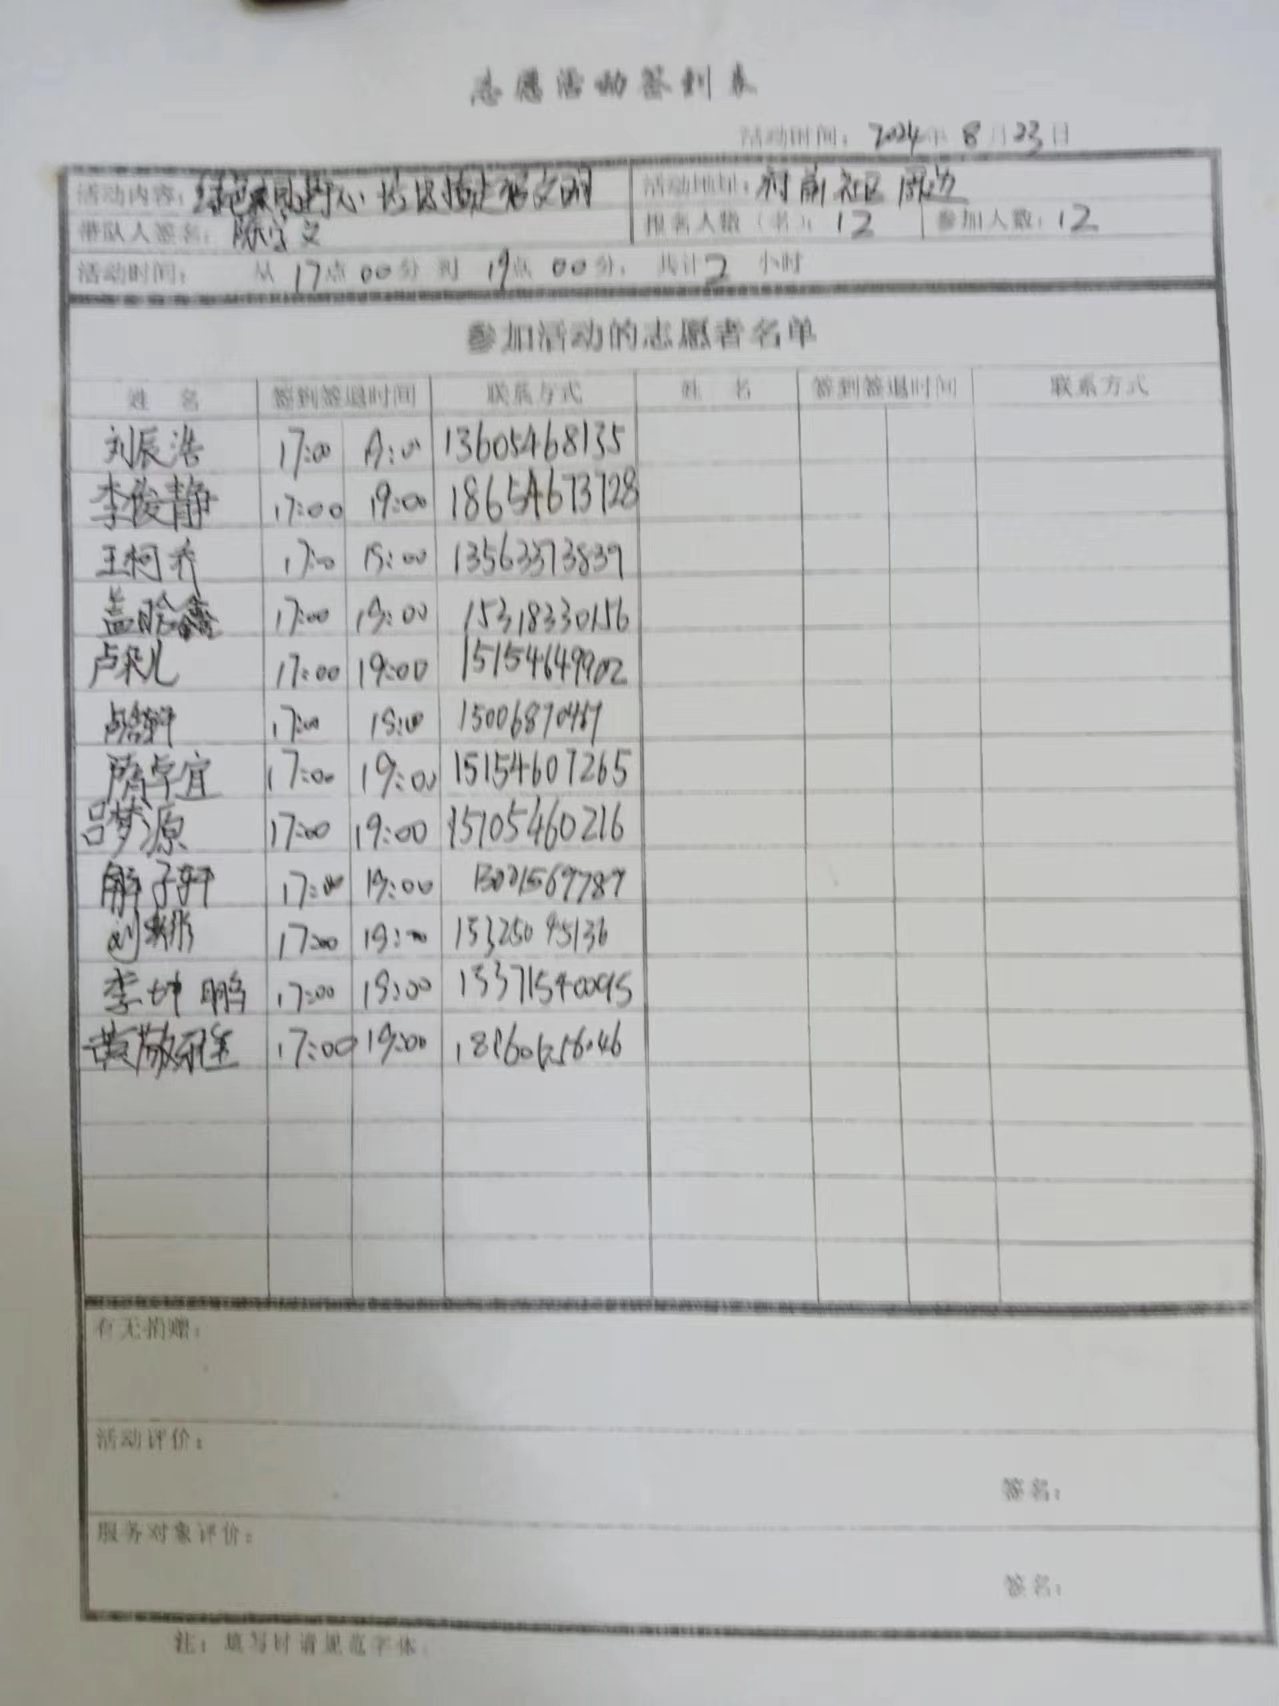 志愿活动签到表
活动时间：2024年8月23日
活动内容： 文明 活动地址：村前社区周边
带队人签名： 文 报名人数（名）：12 参加人数：12
活动时间： 从17点00分到19点00分，共计2小时
参加活动的志愿者名单
姓 名 签到签退时间 联系方式 姓 名 签到签退时间 联系方式
刘辰浩 17:00 19:00 13605468135
李俊静 17:00 19:00 18654673728
王柯 17:00 19:00 13563373839
盖晗鑫 17:00 19:00 15318330156
卢朵儿 17:00 19:00 15154649902
17:00 19:00
隋卓宜 17:00 19:00 15154607265
吕梦源 17:00 19:00 15705460216
解子轩 17:00 19:00
刘 17:00 19:00
李坤鹏 17:00 19:00
黄敬 17:00 19:00
有无捐赠：
活动评价：
签名：
服务对象评价：
签名：
注：填写时请规范字体。